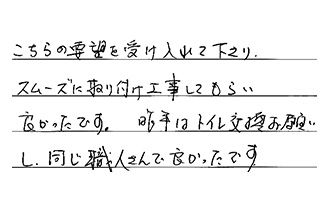 こちらの要望を受け入れて下さり、
スムーズに取り付け工事してもらい
良かったです。 昨年はトイレ交換お願い
し、同じ職人さんで良かったです